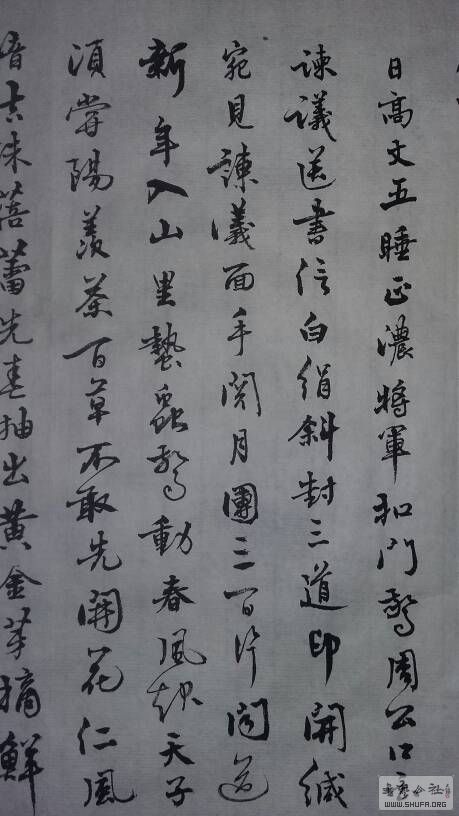 日高丈五睡正濃將軍扣門驚周公口
諫議送書信白絹斜封三道印開緘
宛見諫議面手閱月團三百片聞道
新年入山里蟄蟲驚動春風起天子
須嘗陽羨茶百草不敢先開花仁風
暗結珠蓓蕾先春抽出黃金芽摘鮮
书艺公社
WWW.SHUFA.ORG